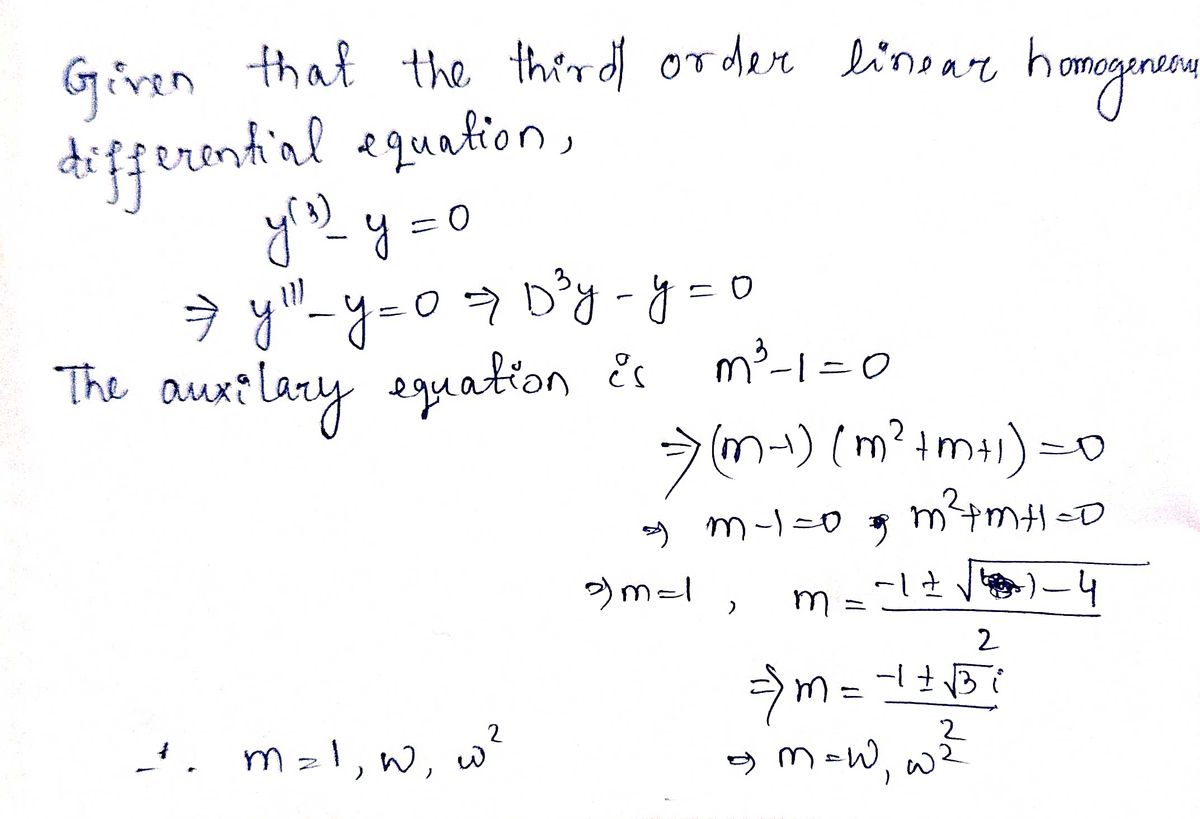 Given that the third order linear homogeneous
differential equation,
y⁽³⁾ - y = 0
⇒ y''' - y = 0 ⇒ D³y - y = 0
The auxilary equation is m³ - 1 = 0
⇒ (m-1) (m² + m + 1) = 0
⇒ m - 1 = 0, m² + m + 1 = 0
⇒ m = 1, m = (-1 ± √1 - 4)/2
⇒ m = (-1 ± √3 i)/2
⇒ m = w, w²
∴ m = 1, w, w²